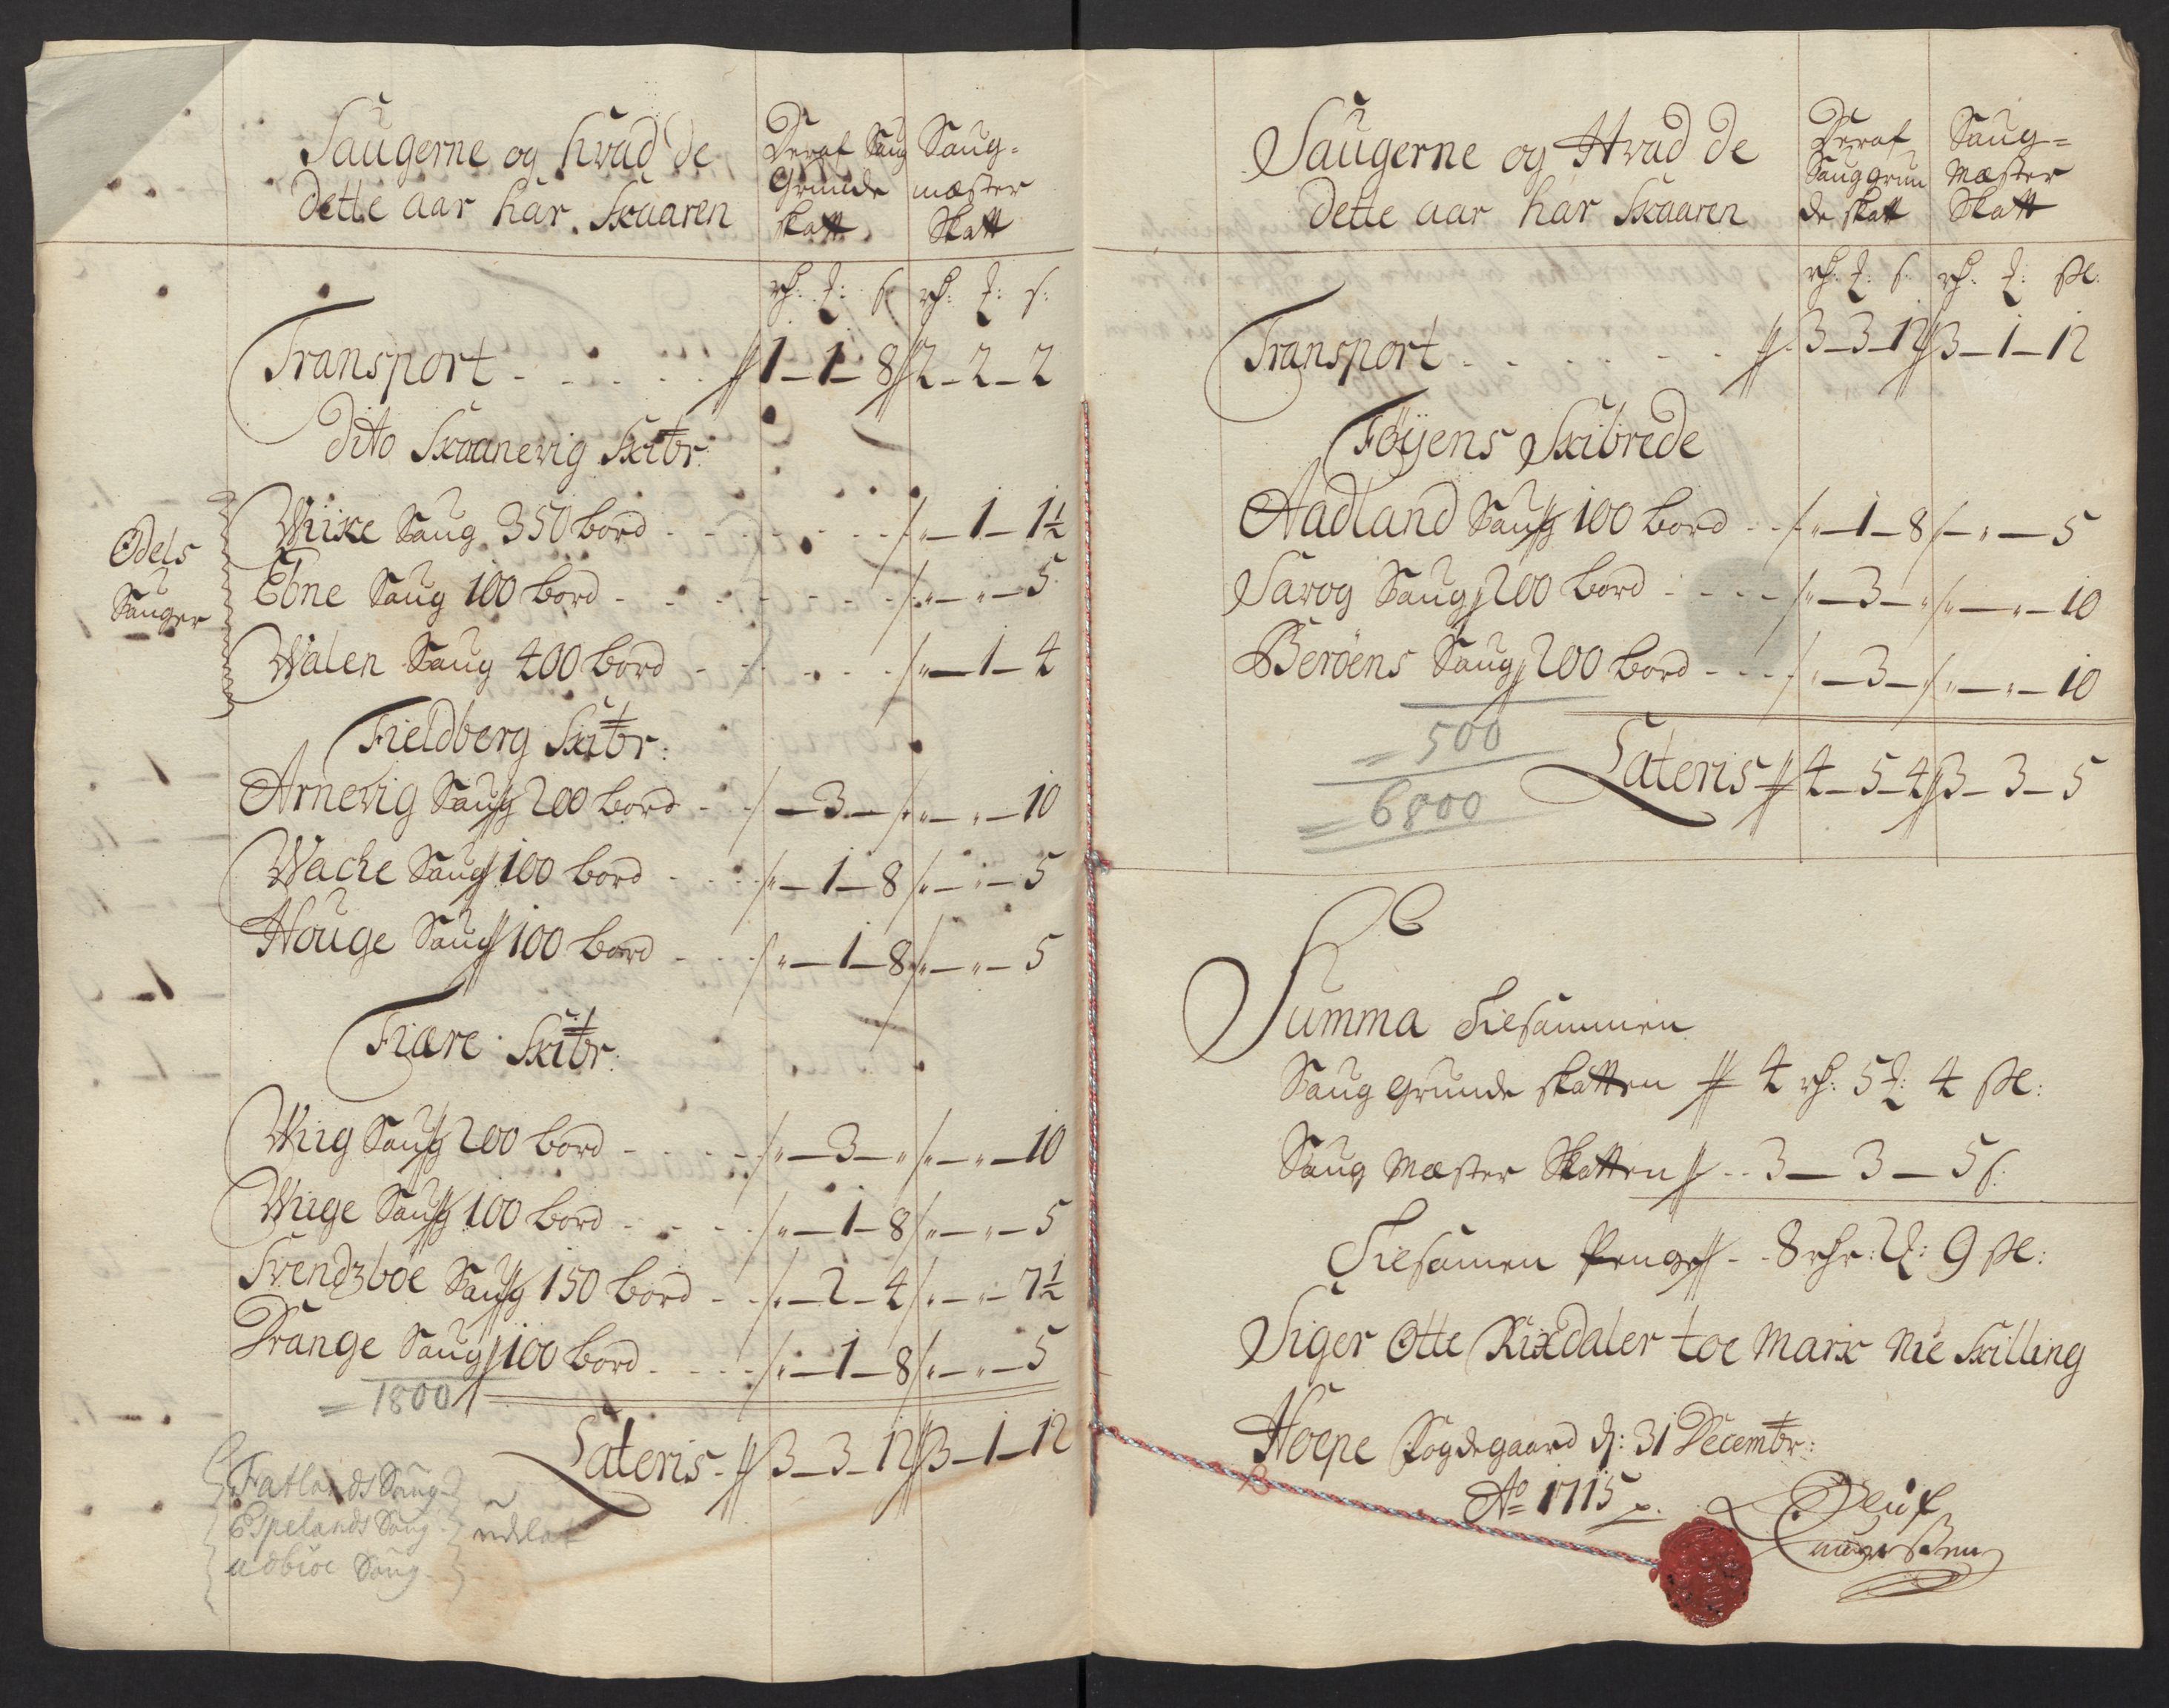 Saugerne og hvad de
dette aar har Skaaren
Deraf Saug
Grunde
skatt
Saug=
mæster
Skatt
rh: ƶ: s rh: ƶ: s:
Transport - - - - - 1 – 1 – 8 2 – 2 – 2
dito Skaanevig Skibr:
Odels
Sauger
Wiike Saug 350 bord - - - - „ – 1 – 1½
Ebne Saug 100 bord - - - - „ – „ – 5
Walen Saug 400 bord - - - - „ – 1 – 4
Fieldberg Skibr:
Arnevig Saug 200 bord - - – 3 – „ – „ – 10
Wache Saug 100 bord - - „ – 1 – 8 „ – „ – 5
Houge Saug 100 bord - - „ – 1 – 8 „ – „ – 5
Fiære Skibr:
Wiig Saug 200 bord - - - „ – 3 – „ „ – „ – 10
Wiige Saug 100 bord - - - „ – 1 – 8 „ – „ – 5
Svendzböe Saug 150 bord - - „ – 2 – 4 „ – „ – 7½
Drange Saug 100 bord - - - „ – 1 – 8 „ – „ – 5
= 1800
Lateris - 3 – 3 – 12 3 – 1 – 12
Fatlands Saug
Espelands Saug
Udbiöe Saug
Saugerne og Hvad de
dette aar har Skaaren
Deraf
Saug grun
de skatt
Saug=
Mæster
Skatt
rh: ƶ: s: rh: ƶ: sk:
Transport - - - - - 3 – 3 – 12 3 – 1 – 12
Föyens Skibrede
Aadland Saug 100 bord - - „ – 1 – 8 – „ – 5
Sarog Saug 200 bord - - - „ – 3 – „ „ – „ – 10
Beröens Saug 200 bord - - - „ – 3 – „ – „ – 10
= 500
= 6800
Lateris 4 – 5 – 4 3 – 3 – 5
Summa Tilsammen
Saug Grunde skatten 4 rh: 5 ƶ: 4 sk:
Saug Mæster Skatten - - 3 – 3 – 5 s:
Tilsamen Penge - - 8 rhr: 2 ƶ: 9 sk:
Siger Otte Rixdaler toe Mark Nie Skilling
Hoepe Fogdegaard d: 31 Decembr:
Ao 1715